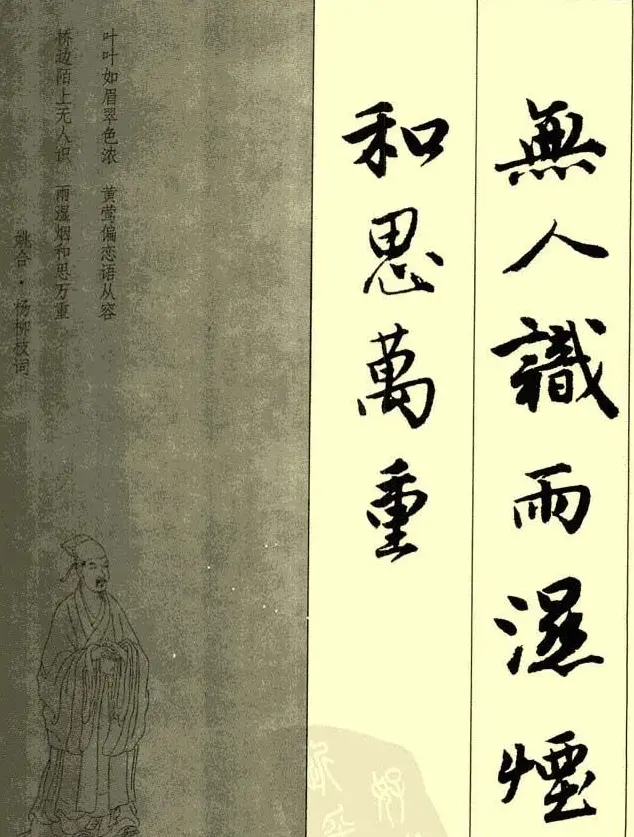 無人識雨濕煙
和思萬重
叶叶如眉翠色浓 黄莺偏恋语从容
桥边陌上无人识 雨湿烟和思万重
姚合·杨柳枝词